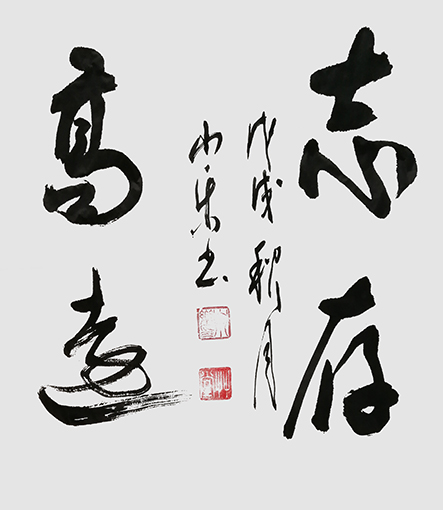 志存
高遠
戊戌秋月
书